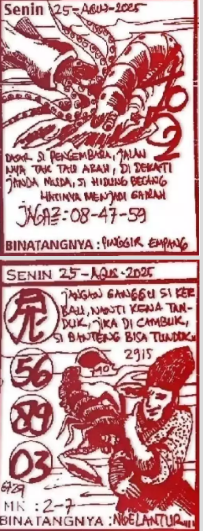 Senin 25-AGUS-2025
402
DASAR SI PENGEMBARA, JALAN
NYA TAK TAU ARAH, DI DEKATI
JANDA MUDA, SI HIDUNG BELANG
HATINYA MENJADI GAIRAH
JAGA2: 08-47-59
BINATANGNYA: PINGGIR EMPANG
SENIN 25-AGUS-2025
JANGAN GANGGU SI KER
BAU, NANTI KENA TAN-
DUK, JIKA DI CAMBUK,
SI BANTENG BISA TUNDUK
2915
56
89
03
6729
MK : 2-7
BINATANGNYA: NGELANTUR